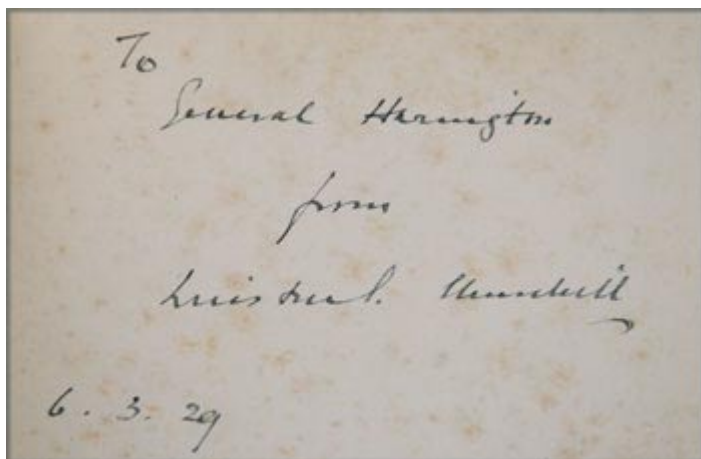 To
General Harington
from
Winston S. Churchill
6. 3. 29